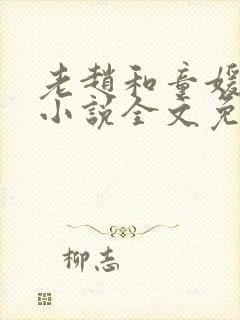 老趙和童媛
小說全文免
柳志